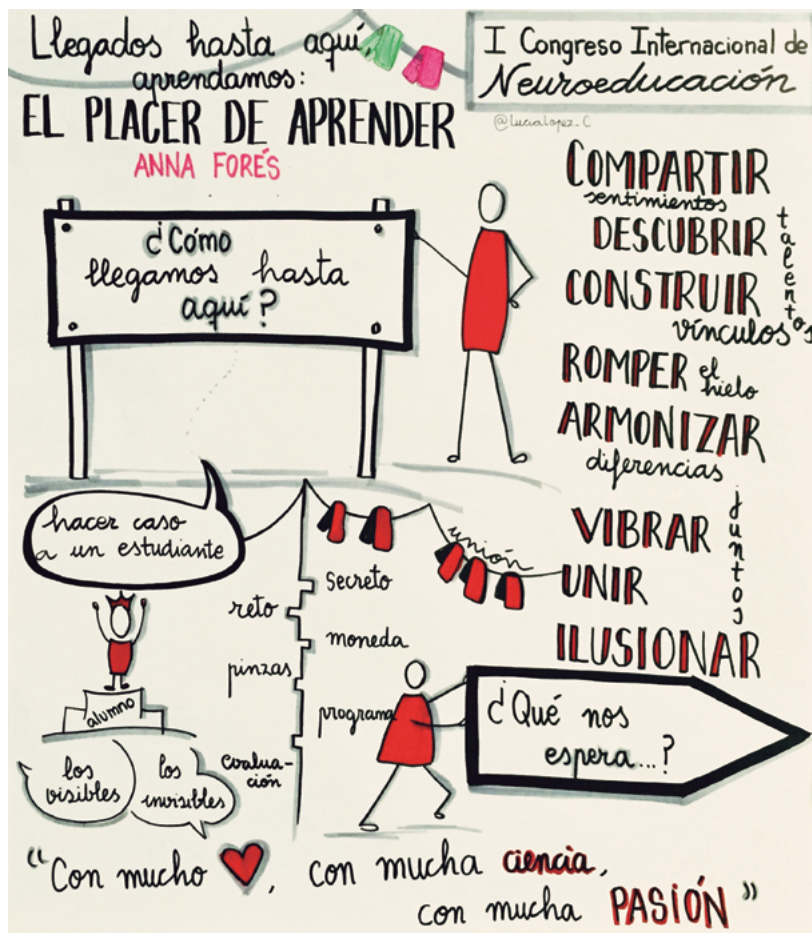 Llegados hasta aquí
aprendamos:
EL PLACER DE APRENDER
ANNA FORÉS
I Congreso Internacional de
Neuroeducación
@lucialopez_c
¿Cómo
llegamos hasta
aquí?
COMPARTIR
sentimientos
DESCUBRIR
talentos
CONSTRUIR
vínculos
ROMPER el
hielo
ARMONIZAR
diferencias
VIBRAR
juntos
UNIR
ILUSIONAR
hacer caso
a un estudiante
unión
secreto
reto
moneda
pinzas
programa
evalua-
ción
alumno
los
visibles
los
invisibles
¿Qué nos
espera...?
"Con mucho ♥, con mucha ciencia,
con mucha PASIÓN"